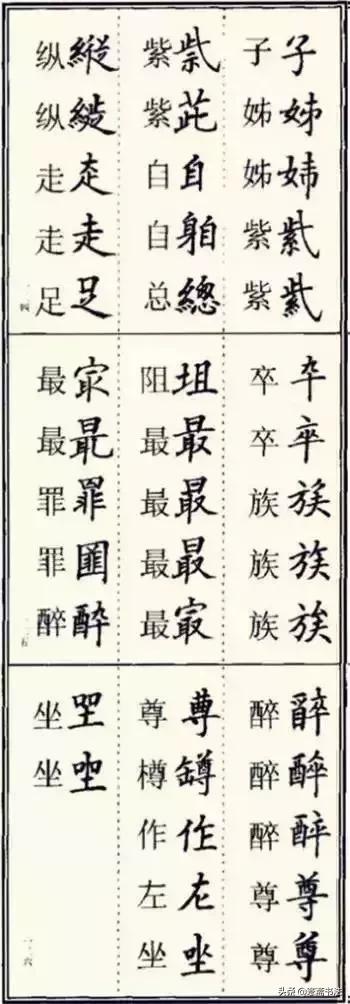 子姊姉紫紫
子姊姊紫紫
紫自總
紫紫自自总
縱縦走走足
纵纵走走足
卆卒族族族
卒卒族族族
最最最㝡
阻最最最最
冣最罪醉
最最罪罪醉
醉醉酔尊尊
醉醉醉尊尊
尊罇作左坐
尊樽作左坐
坐
坐坐
头条